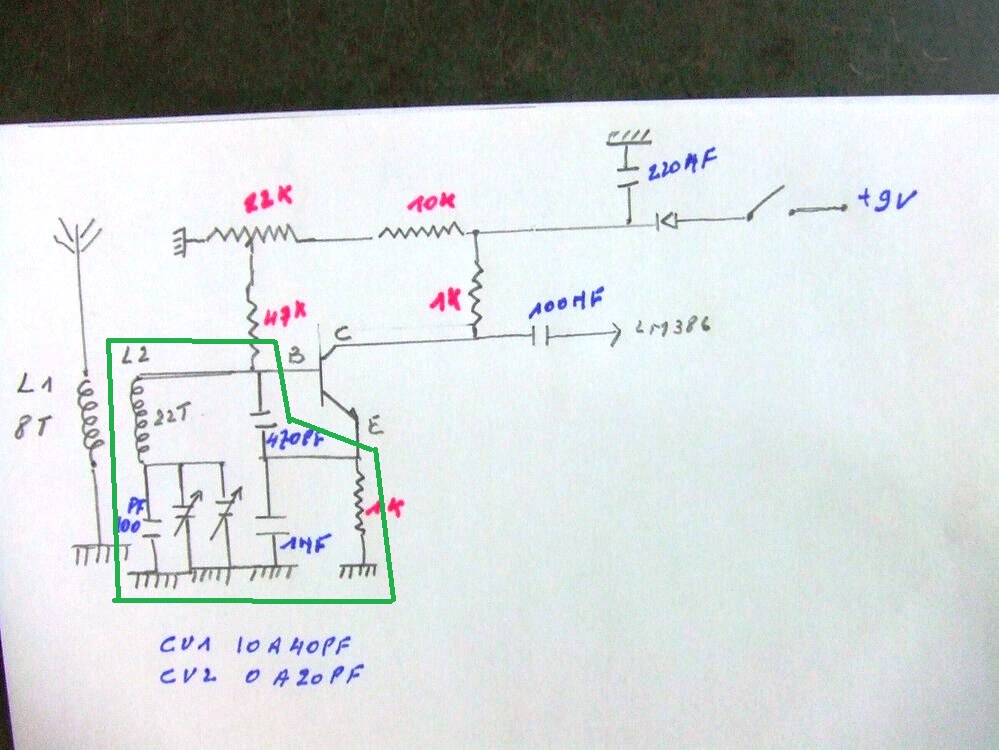 220MF
22K
10K
+9V
1K
100MF
47K
LM386
C
B
L2
L1
22T
8T
E
470PF
PF
100
1K
1MF
CV1 10 A 40PF
CV2 0 A 20PF